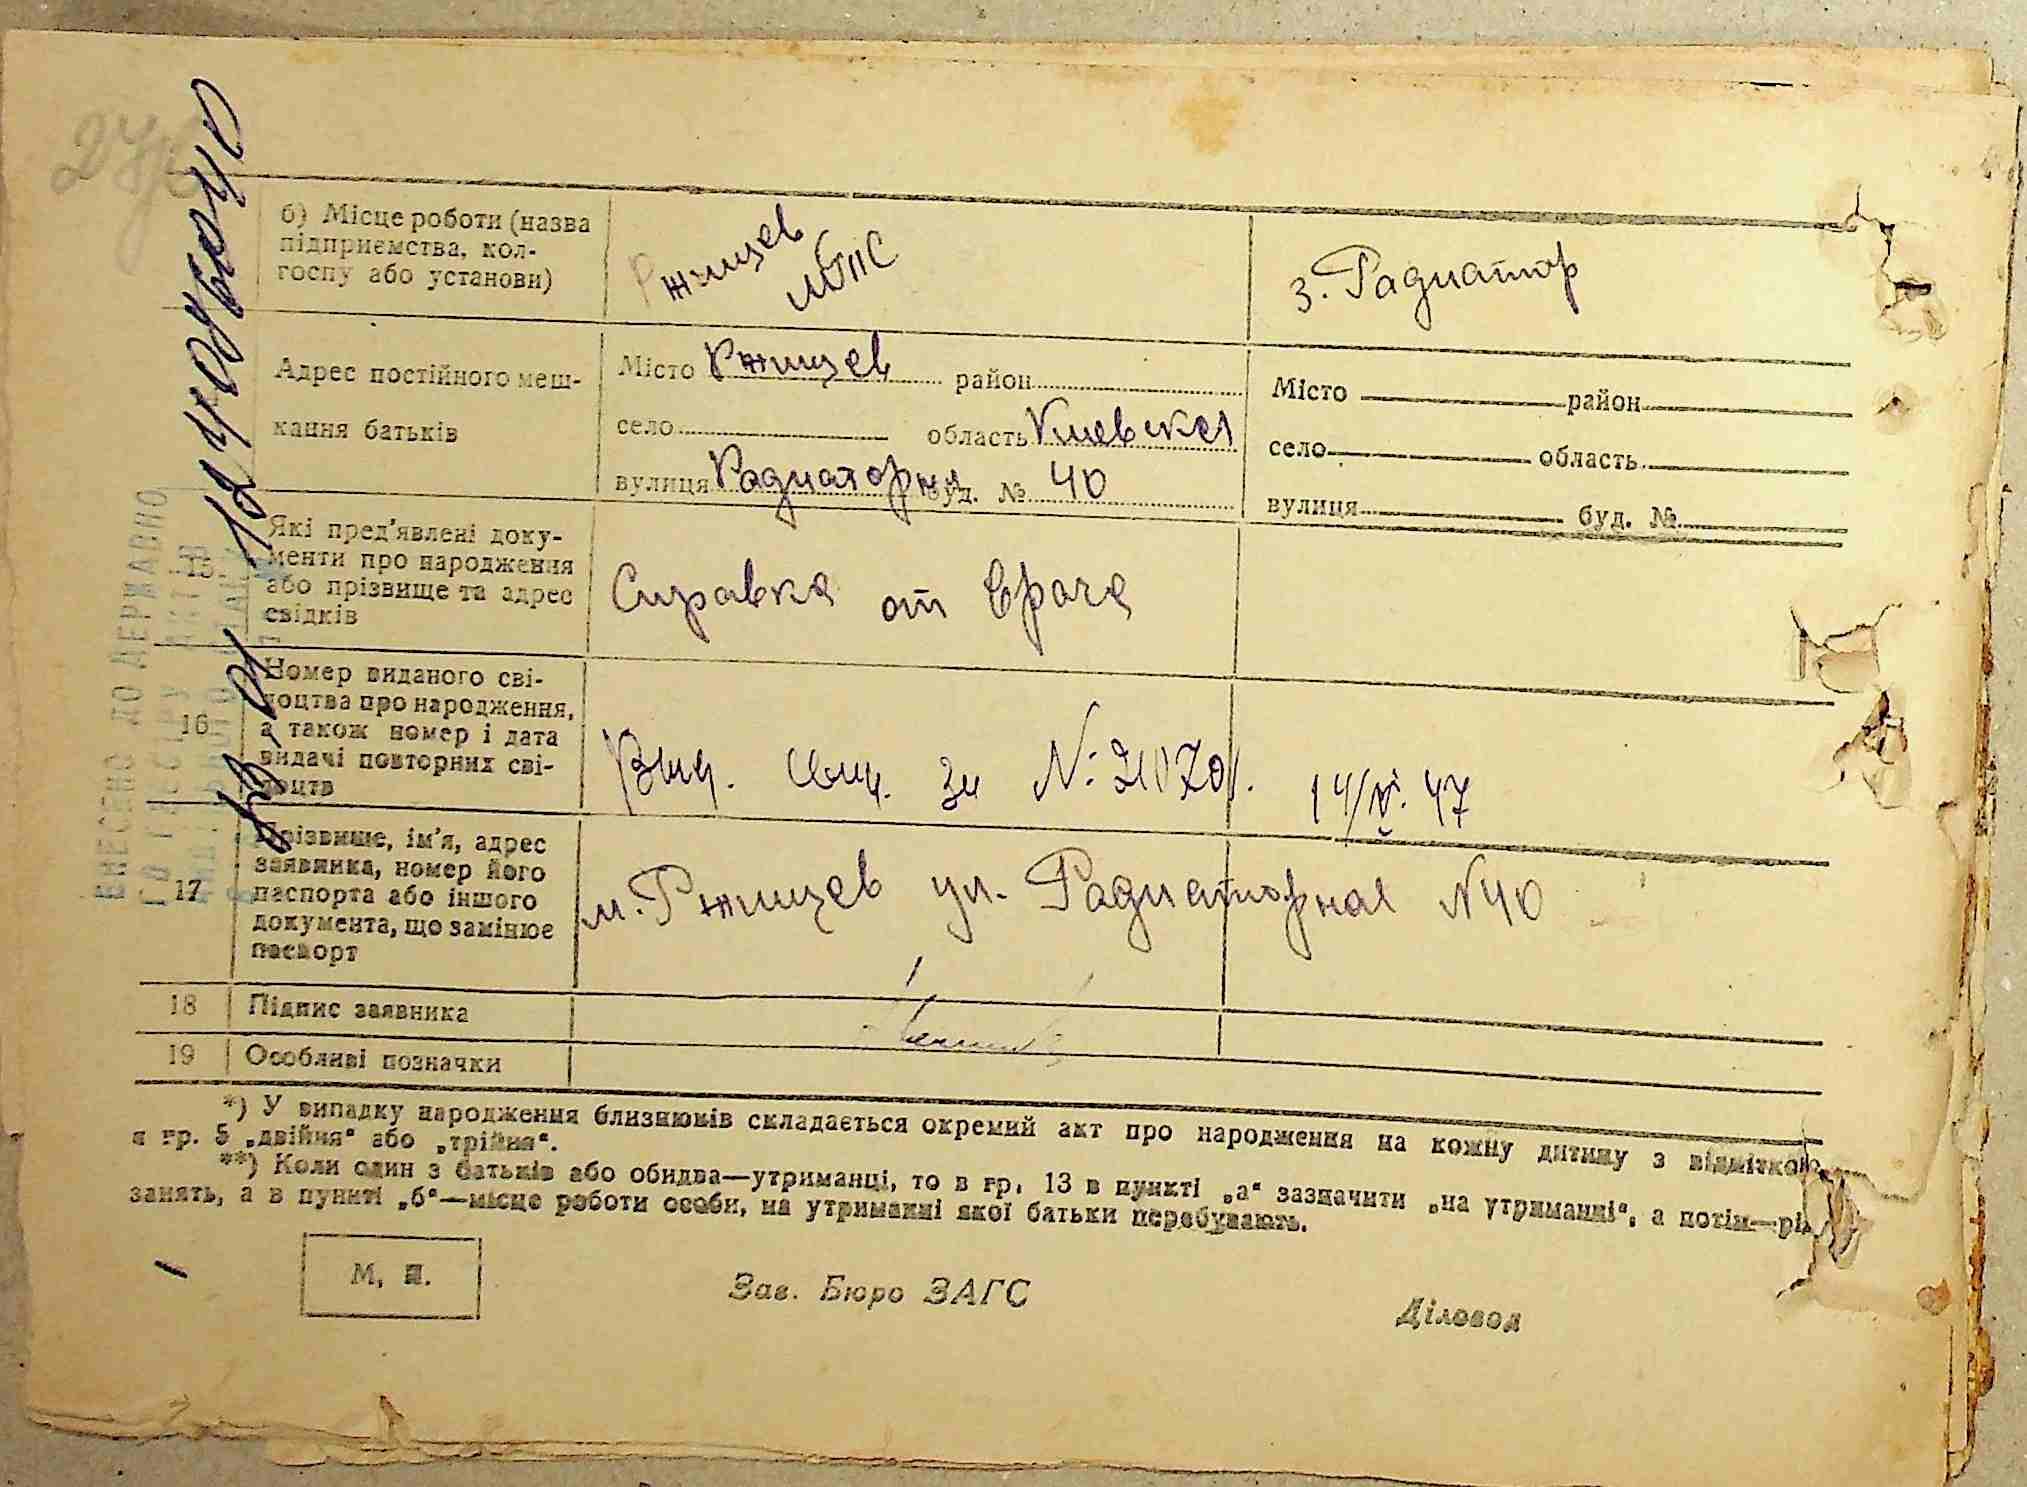 б) Місце роботи (назва
підприємства, кол-
госпу або установи)
Ржищев
з. Радиатор
Адрес постійного меш-
кання батьків
Місто Ржищев район
село область Киевская
вулиця Радиаторн буд. № 40
Місто район
село область
вулиця буд. №
15
Які пред'явлені доку-
менти про народження
або прізвище та адрес
свідків
Справка от врача
16
Номер виданого сві-
доцтва про народження,
а також номер і дата
видачі повторних сві-
доцтв
Выд. за №
47
17
Прізвище, ім'я, адрес
заявника, номер його
паспорта або іншого
документа, що замінює
паспорт
м. Ржищев ул. Радиаторная N 40
18 Підпис заявника
19 Особливі позначки
*) У випадку народження близнюків складається окремий акт про народження на кожну дитину з відміткою
в гр. 5 „двійня“ або „трійня“.
**) Коли один з батьків або обидва—утриманці, то в гр. 13 в пункті „а“ зазначити „на утриманні“, а потім—рід
занять, а в пункті „б“—місце роботи особи, на утриманні якої батьки перебувають.
М. П.
Зав. Бюро ЗАГС
Діловод
ВНЕСЕНО ДО ДЕРЖАВНО